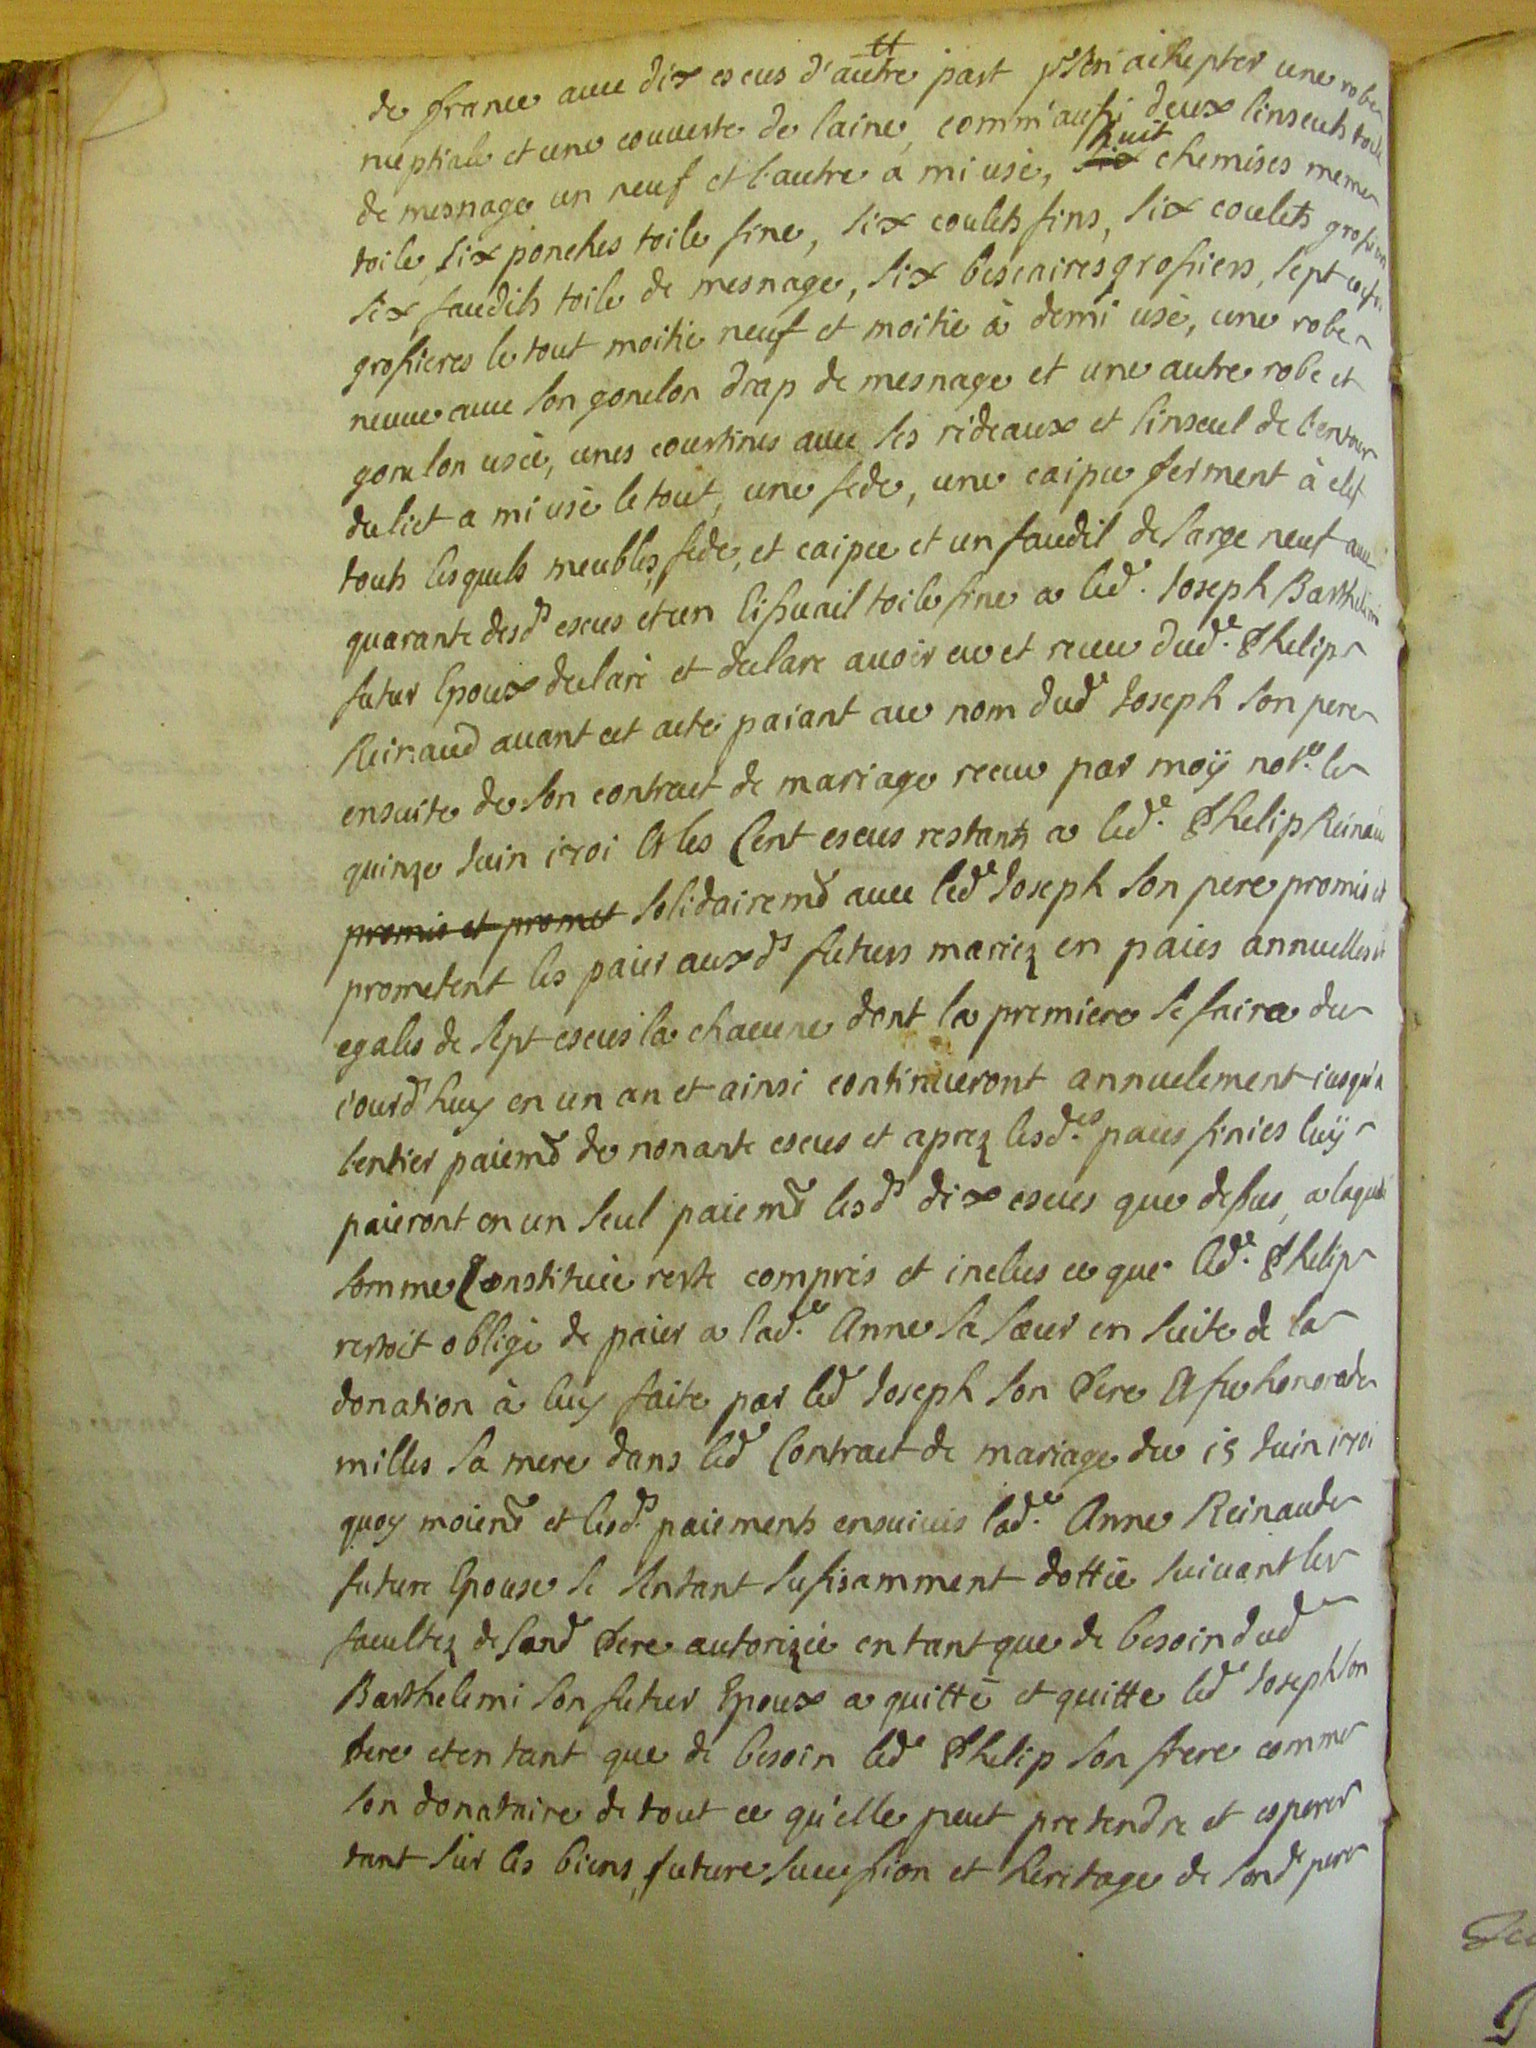 de france avec dix escus d'autre part p.r s'en achepter une robe
nuptiale et une couverte de laine, comm'aussi deux linseuls toile
de mesnage un neuf et l'autre a mi usé, huit chemises meme
toile, six ponches toile fine, six coulets fins, six coulets grossiers
six faudils toile de mesnage, six bescaires grossiers, sept coefes
grossieres le tout moitié neuf et moitié à demi usé, une robe
neuve avec son gonelon drap de mesnage et une autre robe et
gonelon usée, unes courtines avec ses rideaux et linseul de l'entour
du lict a mi usé le tout, une fede, une caipce ferment à clef
touts lesquels meubles, fede, et caipce et un faudil de sarge neuf avec
quarante desd.s escus et un lissuail toile fine a led.e Joseph Barthelemi
futur Epoux declaré et declare avoir eu et receu dud.e Phelip
Reinaud avant cet acte paiant au nom dud.e Joseph son pere
ensuite de son contract de mariage receu par moÿ not.e le
quinze Juin 1701 Et les Cent escus restants a led.e Phelip Reinaud
promis et promet solidairem.t avec led.e Joseph son pere promis et
prometent les paier aux d.s futurs mariez en paies annuelles et
egales de sept escus la chacune dont la premiere se faira du
jourd'huy en un an et ainsi continueront annuelement jusqu'a
l'entier paiem.t de nonante escus et aprez lesd.es paies finies luÿ
paieront en un seul paiem.t lesd.s dix escus que dessus, a laquelle
somme Constituée reste compris et inclus ce que led.e Phelip
restoit obligé de paier a lad.e Anne sa sœur en suite de la
donation à luy faite par led Joseph son Pere Et fue honorade
milles sa mere dans led Contract de mariage du 15 Juin 1701
quoy moien.t et lesd.s paiements ensuivis lad.e Anne Reinaude
future Epouse se sentant sufisamment dottée suivant les
facultez de sond Pere autorizée en tant que de besoin dud
Barthelemi son futur Epoux a quitté et quitte led.e Joseph son
Pere et en tant que de besoin led.e Phelip son frere comme
son donataire de tout ce qu'elle peut pretendre et esperer
tant sur les biens, future succession et heritage de sond.e pere